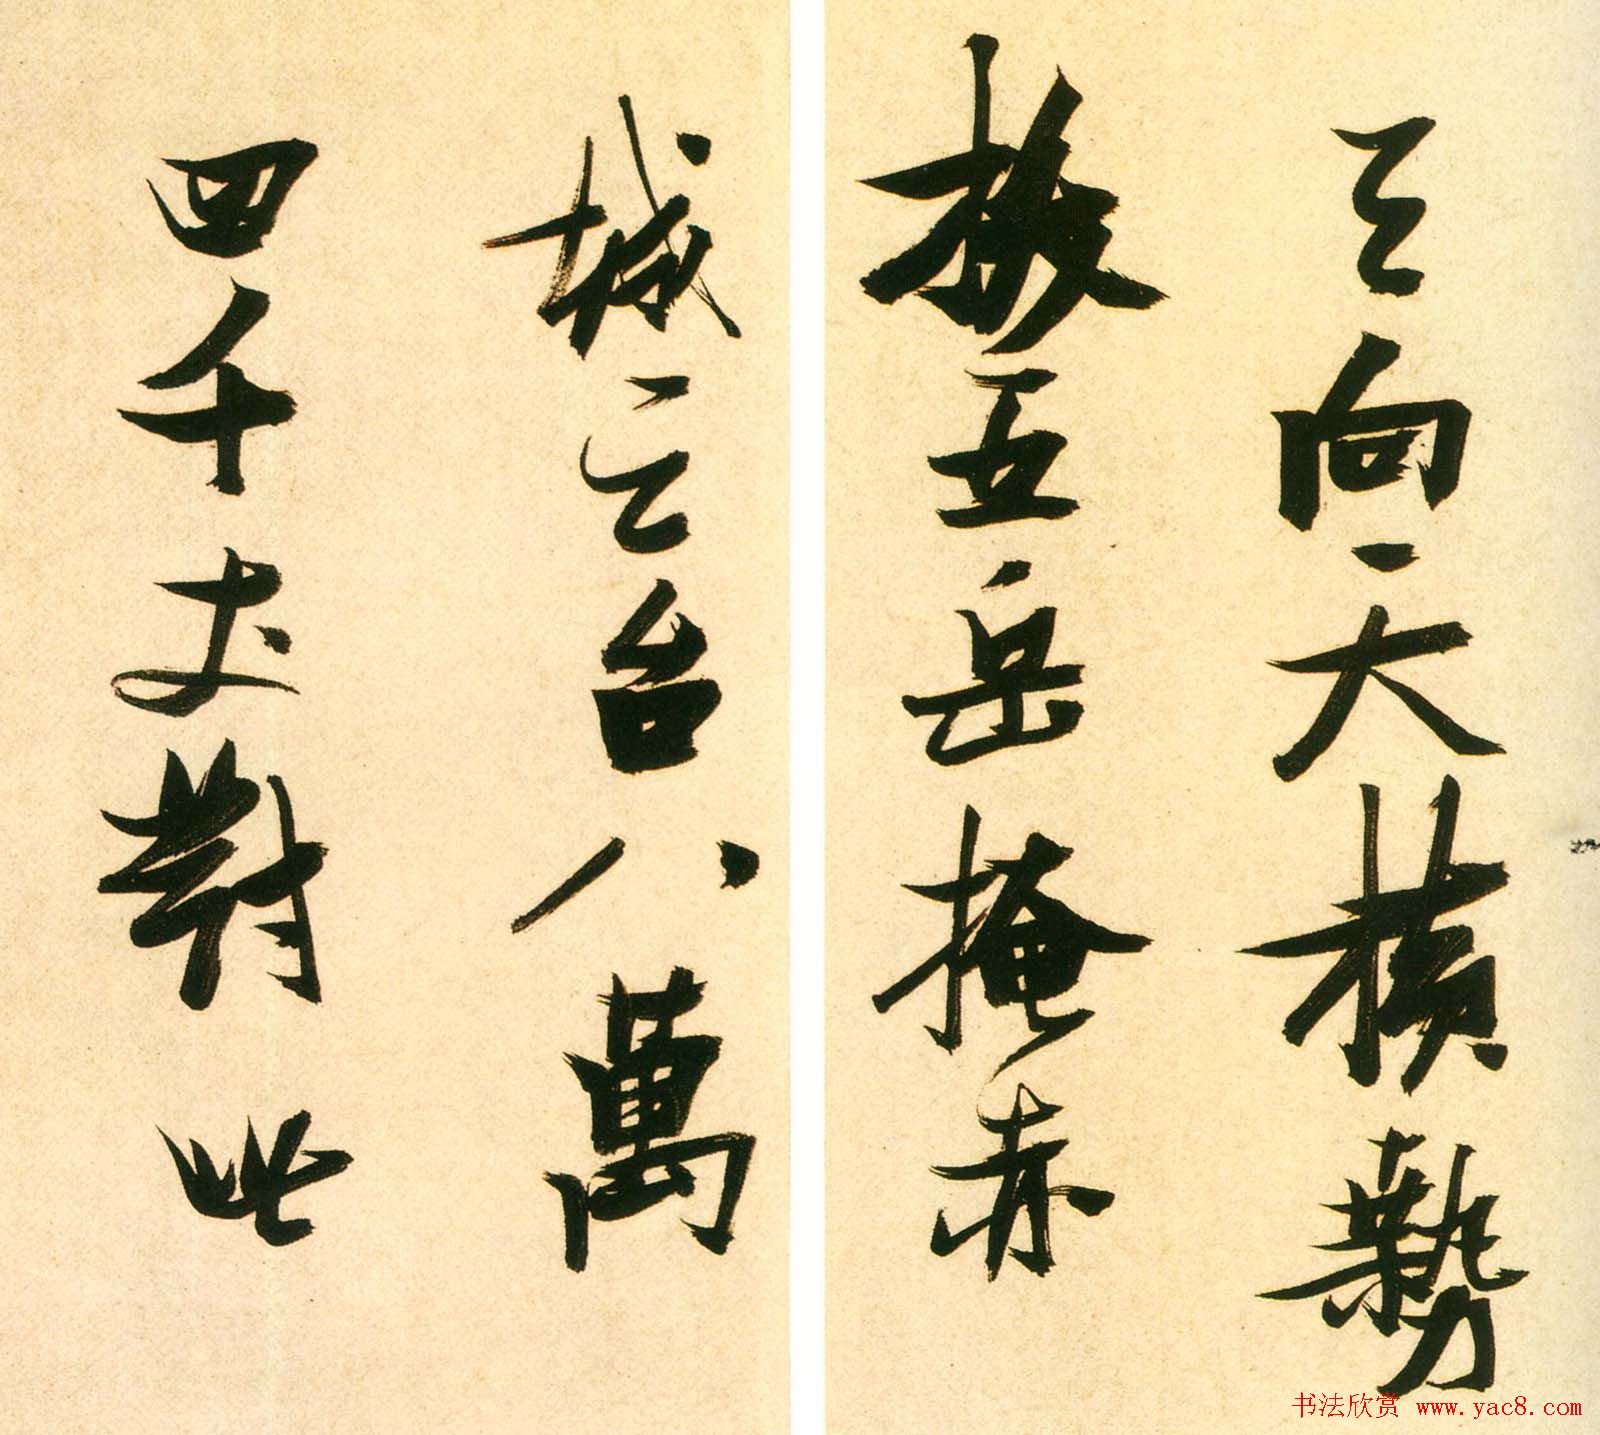 天向天横勢
拔五岳掩赤
城天台八萬
四千丈對此
书法欣赏 www.yac8.com